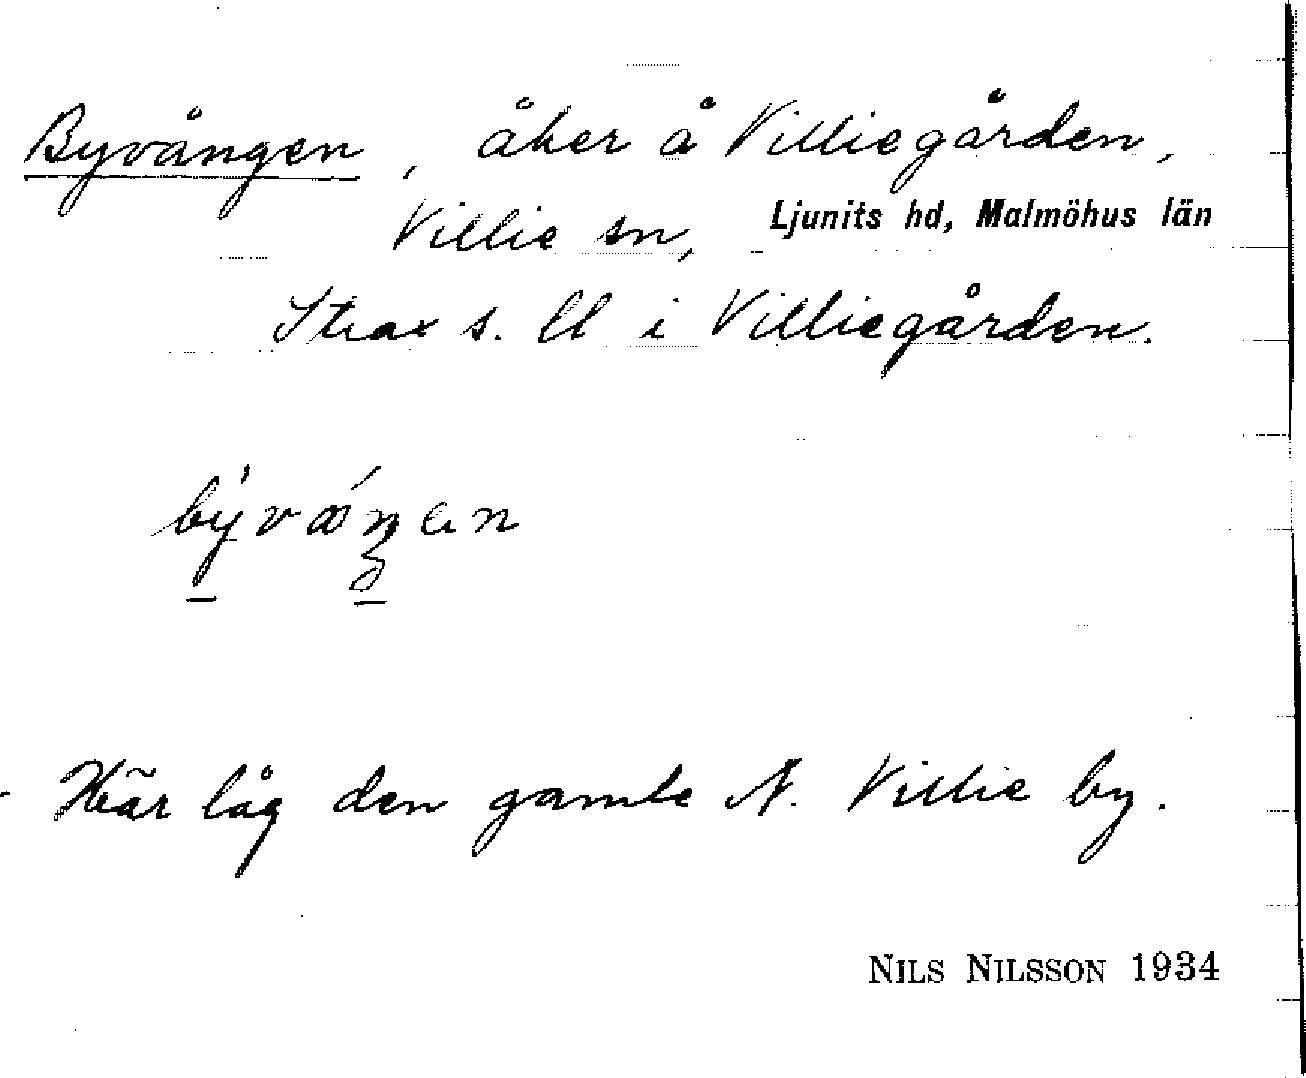 Byvången, åker å Villiegården,
Villie sn, Ljunits hd, Malmöhus län
Strax s. ll i Villiegården.
Här låg den gamle N. Villie by.
NILS NILSSON 1934